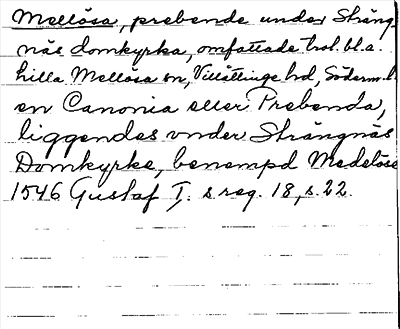 Mellösa, prebende under Sträng-
näs domkyrka, omfattade trol. bl.a.
Lilla Mellösa sn, Villåttinge hd, Söderm.l.
en Canonia eller Prebenda,
liggendes vnder Strängnäs
Domkyrke, benempd Medelöse
1546 Gustaf I:s reg. 18, s. 22.